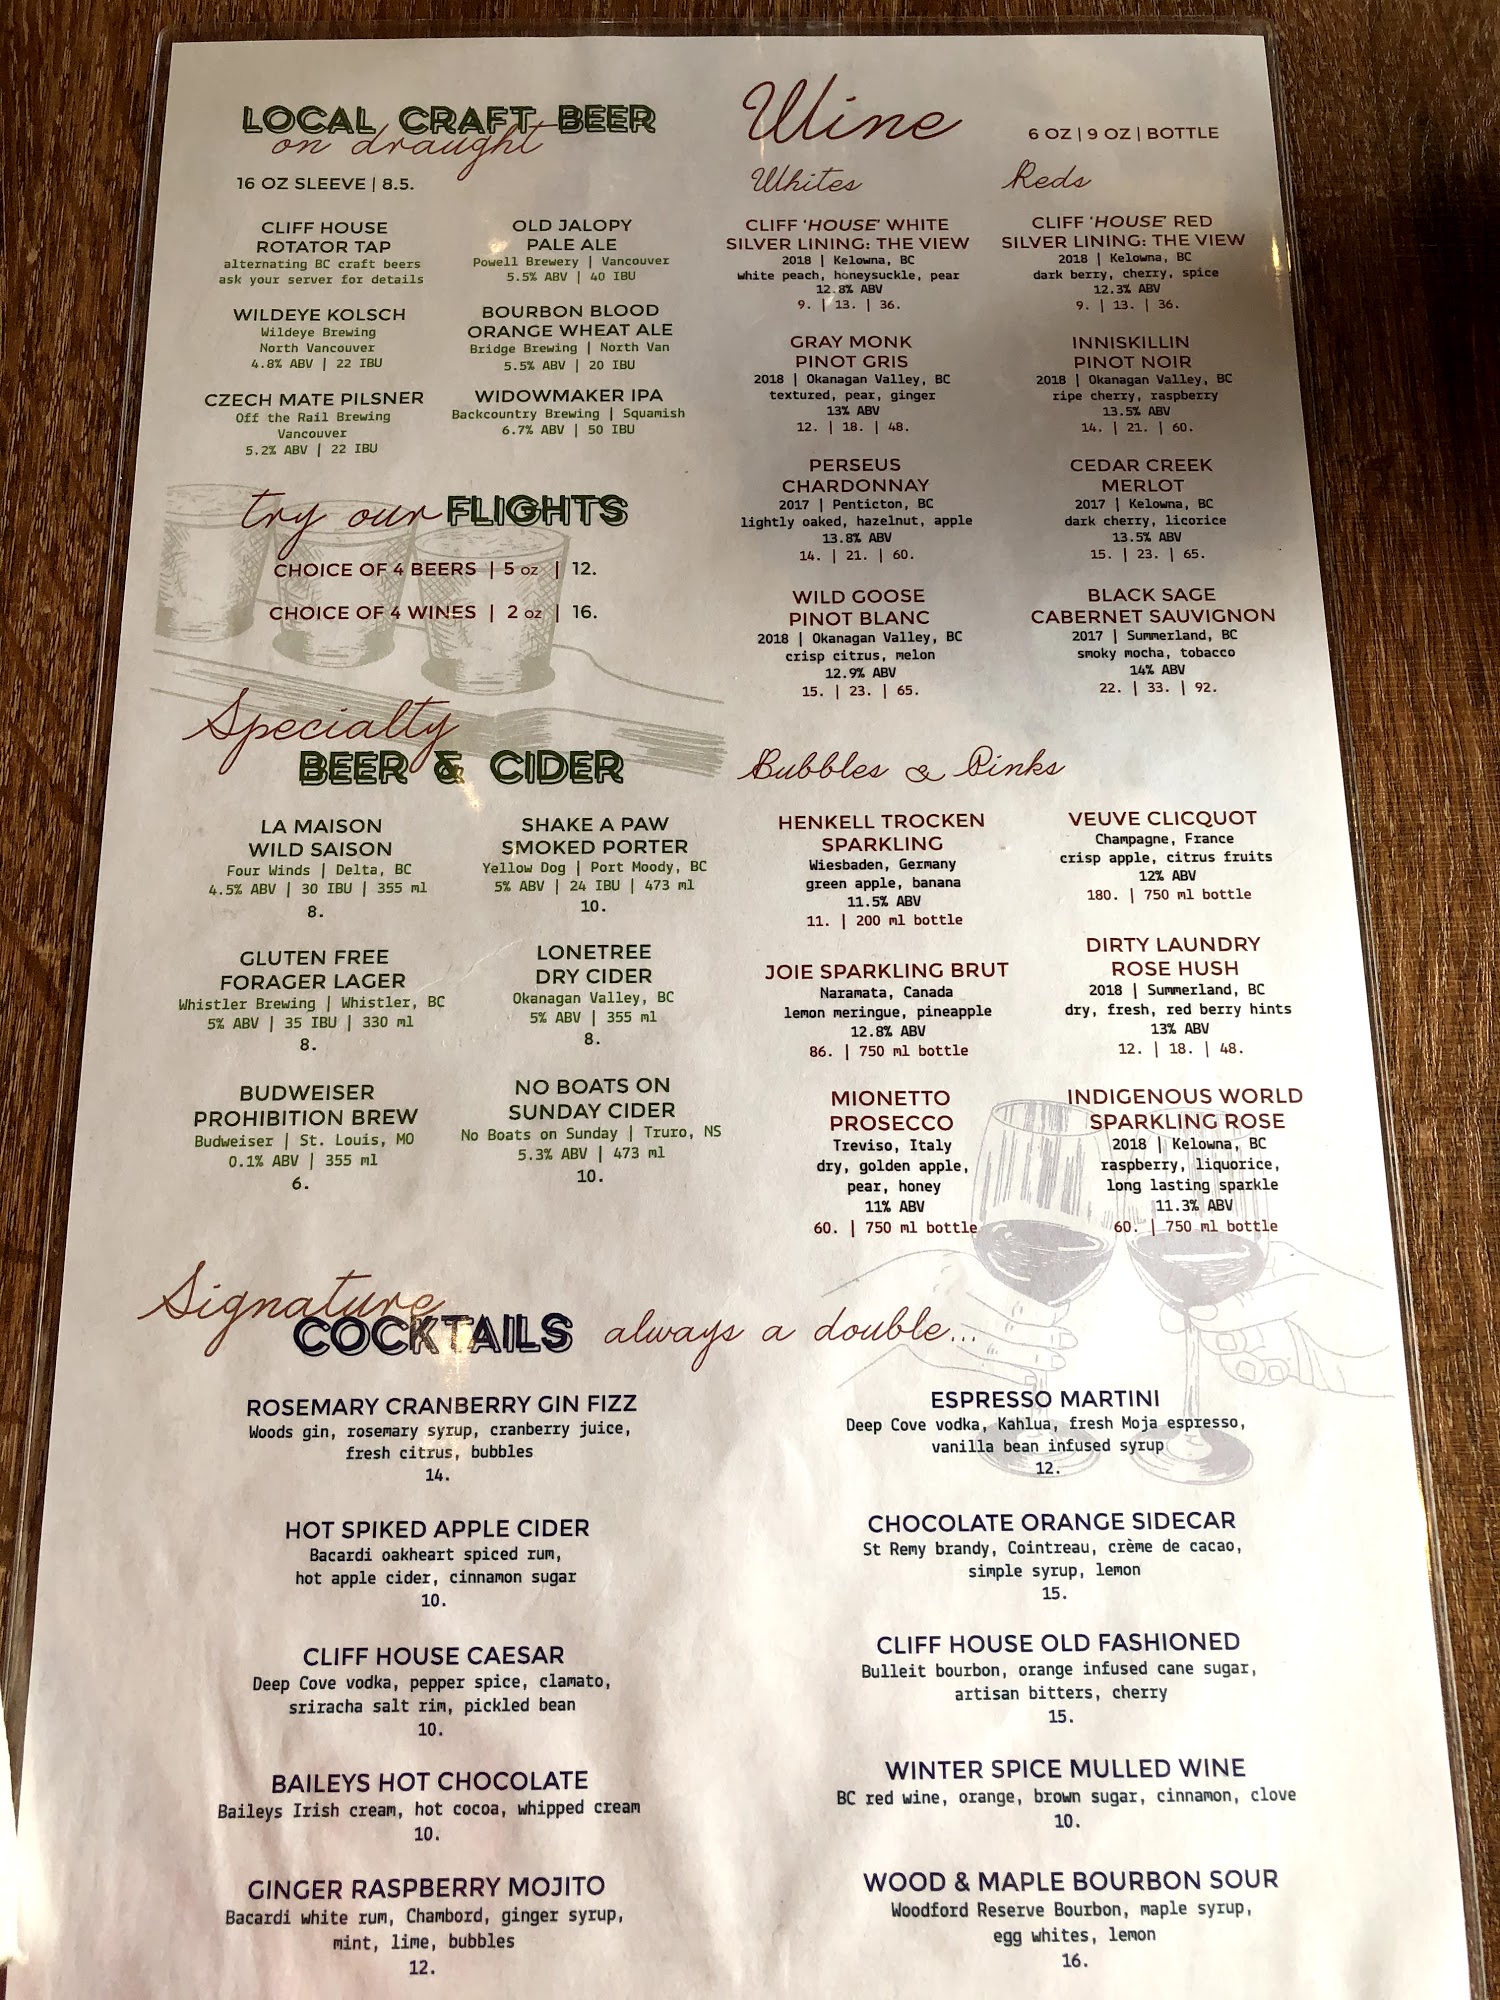 LOCAL CRAFT BEER
on draught
16 OZ SLEEVE | 8.5.
CLIFF HOUSE
ROTATOR TAP
alternating BC craft beers
ask your server for details
WILDEYE KOLSCH
Wildeye Brewing
North Vancouver
4.8% ABV | 22 IBU
CZECH MATE PILSNER
Off the Rail Brewing
Vancouver
5.2% ABV | 22 IBU
OLD JALOPY
PALE ALE
Powell Brewery | Vancouver
5.5% ABV | 40 IBU
BOURBON BLOOD
ORANGE WHEAT ALE
Bridge Brewing | North Van
5.5% ABV | 20 IBU
WIDOWMAKER IPA
Backcountry Brewing | Squamish
6.7% ABV | 50 IBU
try our FLIGHTS
CHOICE OF 4 BEERS | 5 oz | 12.
CHOICE OF 4 WINES | 2 oz | 16.
Specialty
BEER & CIDER
LA MAISON
WILD SAISON
Four Winds | Delta, BC
4.5% ABV | 30 IBU | 355 ml
8.
GLUTEN FREE
FORAGER LAGER
Whistler Brewing | Whistler, BC
5% ABV | 35 IBU | 330 ml
8.
BUDWEISER
PROHIBITION BREW
Budweiser | St. Louis, MO
0.1% ABV | 355 ml
6.
SHAKE A PAW
SMOKED PORTER
Yellow Dog | Port Moody, BC
5% ABV | 24 IBU | 473 ml
10.
LONETREE
DRY CIDER
Okanagan Valley, BC
5% ABV | 355 ml
8.
NO BOATS ON
SUNDAY CIDER
No Boats on Sunday | Truro, NS
5.3% ABV | 473 ml
10.
Wine
6 OZ | 9 OZ | BOTTLE
Whites
CLIFF 'HOUSE' WHITE
SILVER LINING: THE VIEW
2018 | Kelowna, BC
white peach, honeysuckle, pear
12.8% ABV
9. | 13. | 36.
GRAY MONK
PINOT GRIS
2018 | Okanagan Valley, BC
textured, pear, ginger
13% ABV
12. | 18. | 48.
PERSEUS
CHARDONNAY
2017 | Penticton, BC
lightly oaked, hazelnut, apple
13.8% ABV
14. | 21. | 60.
WILD GOOSE
PINOT BLANC
2018 | Okanagan Valley, BC
crisp citrus, melon
12.9% ABV
15. | 23. | 65.
Reds
CLIFF 'HOUSE' RED
SILVER LINING: THE VIEW
2018 | Kelowna, BC
dark berry, cherry, spice
12.3% ABV
9. | 13. | 36.
INNISKILLIN
PINOT NOIR
2018 | Okanagan Valley, BC
ripe cherry, raspberry
13.5% ABV
14. | 21. | 60.
CEDAR CREEK
MERLOT
2017 | Kelowna, BC
dark cherry, licorice
13.5% ABV
15. | 23. | 65.
BLACK SAGE
CABERNET SAUVIGNON
2017 | Summerland, BC
smoky mocha, tobacco
14% ABV
22. | 33. | 92.
Bubbles & Pinks
HENKELL TROCKEN
SPARKLING
Wiesbaden, Germany
green apple, banana
11.5% ABV
11. | 200 ml bottle
JOIE SPARKLING BRUT
Naramata, Canada
lemon meringue, pineapple
12.8% ABV
86. | 750 ml bottle
MIONETTO
PROSECCO
Treviso, Italy
dry, golden apple,
pear, honey
11% ABV
60. | 750 ml bottle
VEUVE CLICQUOT
Champagne, France
crisp apple, citrus fruits
12% ABV
180. | 750 ml bottle
DIRTY LAUNDRY
ROSE HUSH
2018 | Summerland, BC
dry, fresh, red berry hints
13% ABV
12. | 18. | 48.
INDIGENOUS WORLD
SPARKLING ROSE
2018 | Kelowna, BC
raspberry, liquorice,
long lasting sparkle
11.3% ABV
60. | 750 ml bottle
Signature
COCKTAILS always a double...
ROSEMARY CRANBERRY GIN FIZZ
Woods gin, rosemary syrup, cranberry juice,
fresh citrus, bubbles
14.
HOT SPIKED APPLE CIDER
Bacardi oakheart spiced rum,
hot apple cider, cinnamon sugar
10.
CLIFF HOUSE CAESAR
Deep Cove vodka, pepper spice, clamato,
sriracha salt rim, pickled bean
10.
BAILEYS HOT CHOCOLATE
Baileys Irish cream, hot cocoa, whipped cream
10.
GINGER RASPBERRY MOJITO
Bacardi white rum, Chambord, ginger syrup,
mint, lime, bubbles
12.
ESPRESSO MARTINI
Deep Cove vodka, Kahlua, fresh Moja espresso,
vanilla bean infused syrup
12.
CHOCOLATE ORANGE SIDECAR
St Remy brandy, Cointreau, crème de cacao,
simple syrup, lemon
15.
CLIFF HOUSE OLD FASHIONED
Bulleit bourbon, orange infused cane sugar,
artisan bitters, cherry
15.
WINTER SPICE MULLED WINE
BC red wine, orange, brown sugar, cinnamon, clove
10.
WOOD & MAPLE BOURBON SOUR
Woodford Reserve Bourbon, maple syrup,
egg whites, lemon
16.